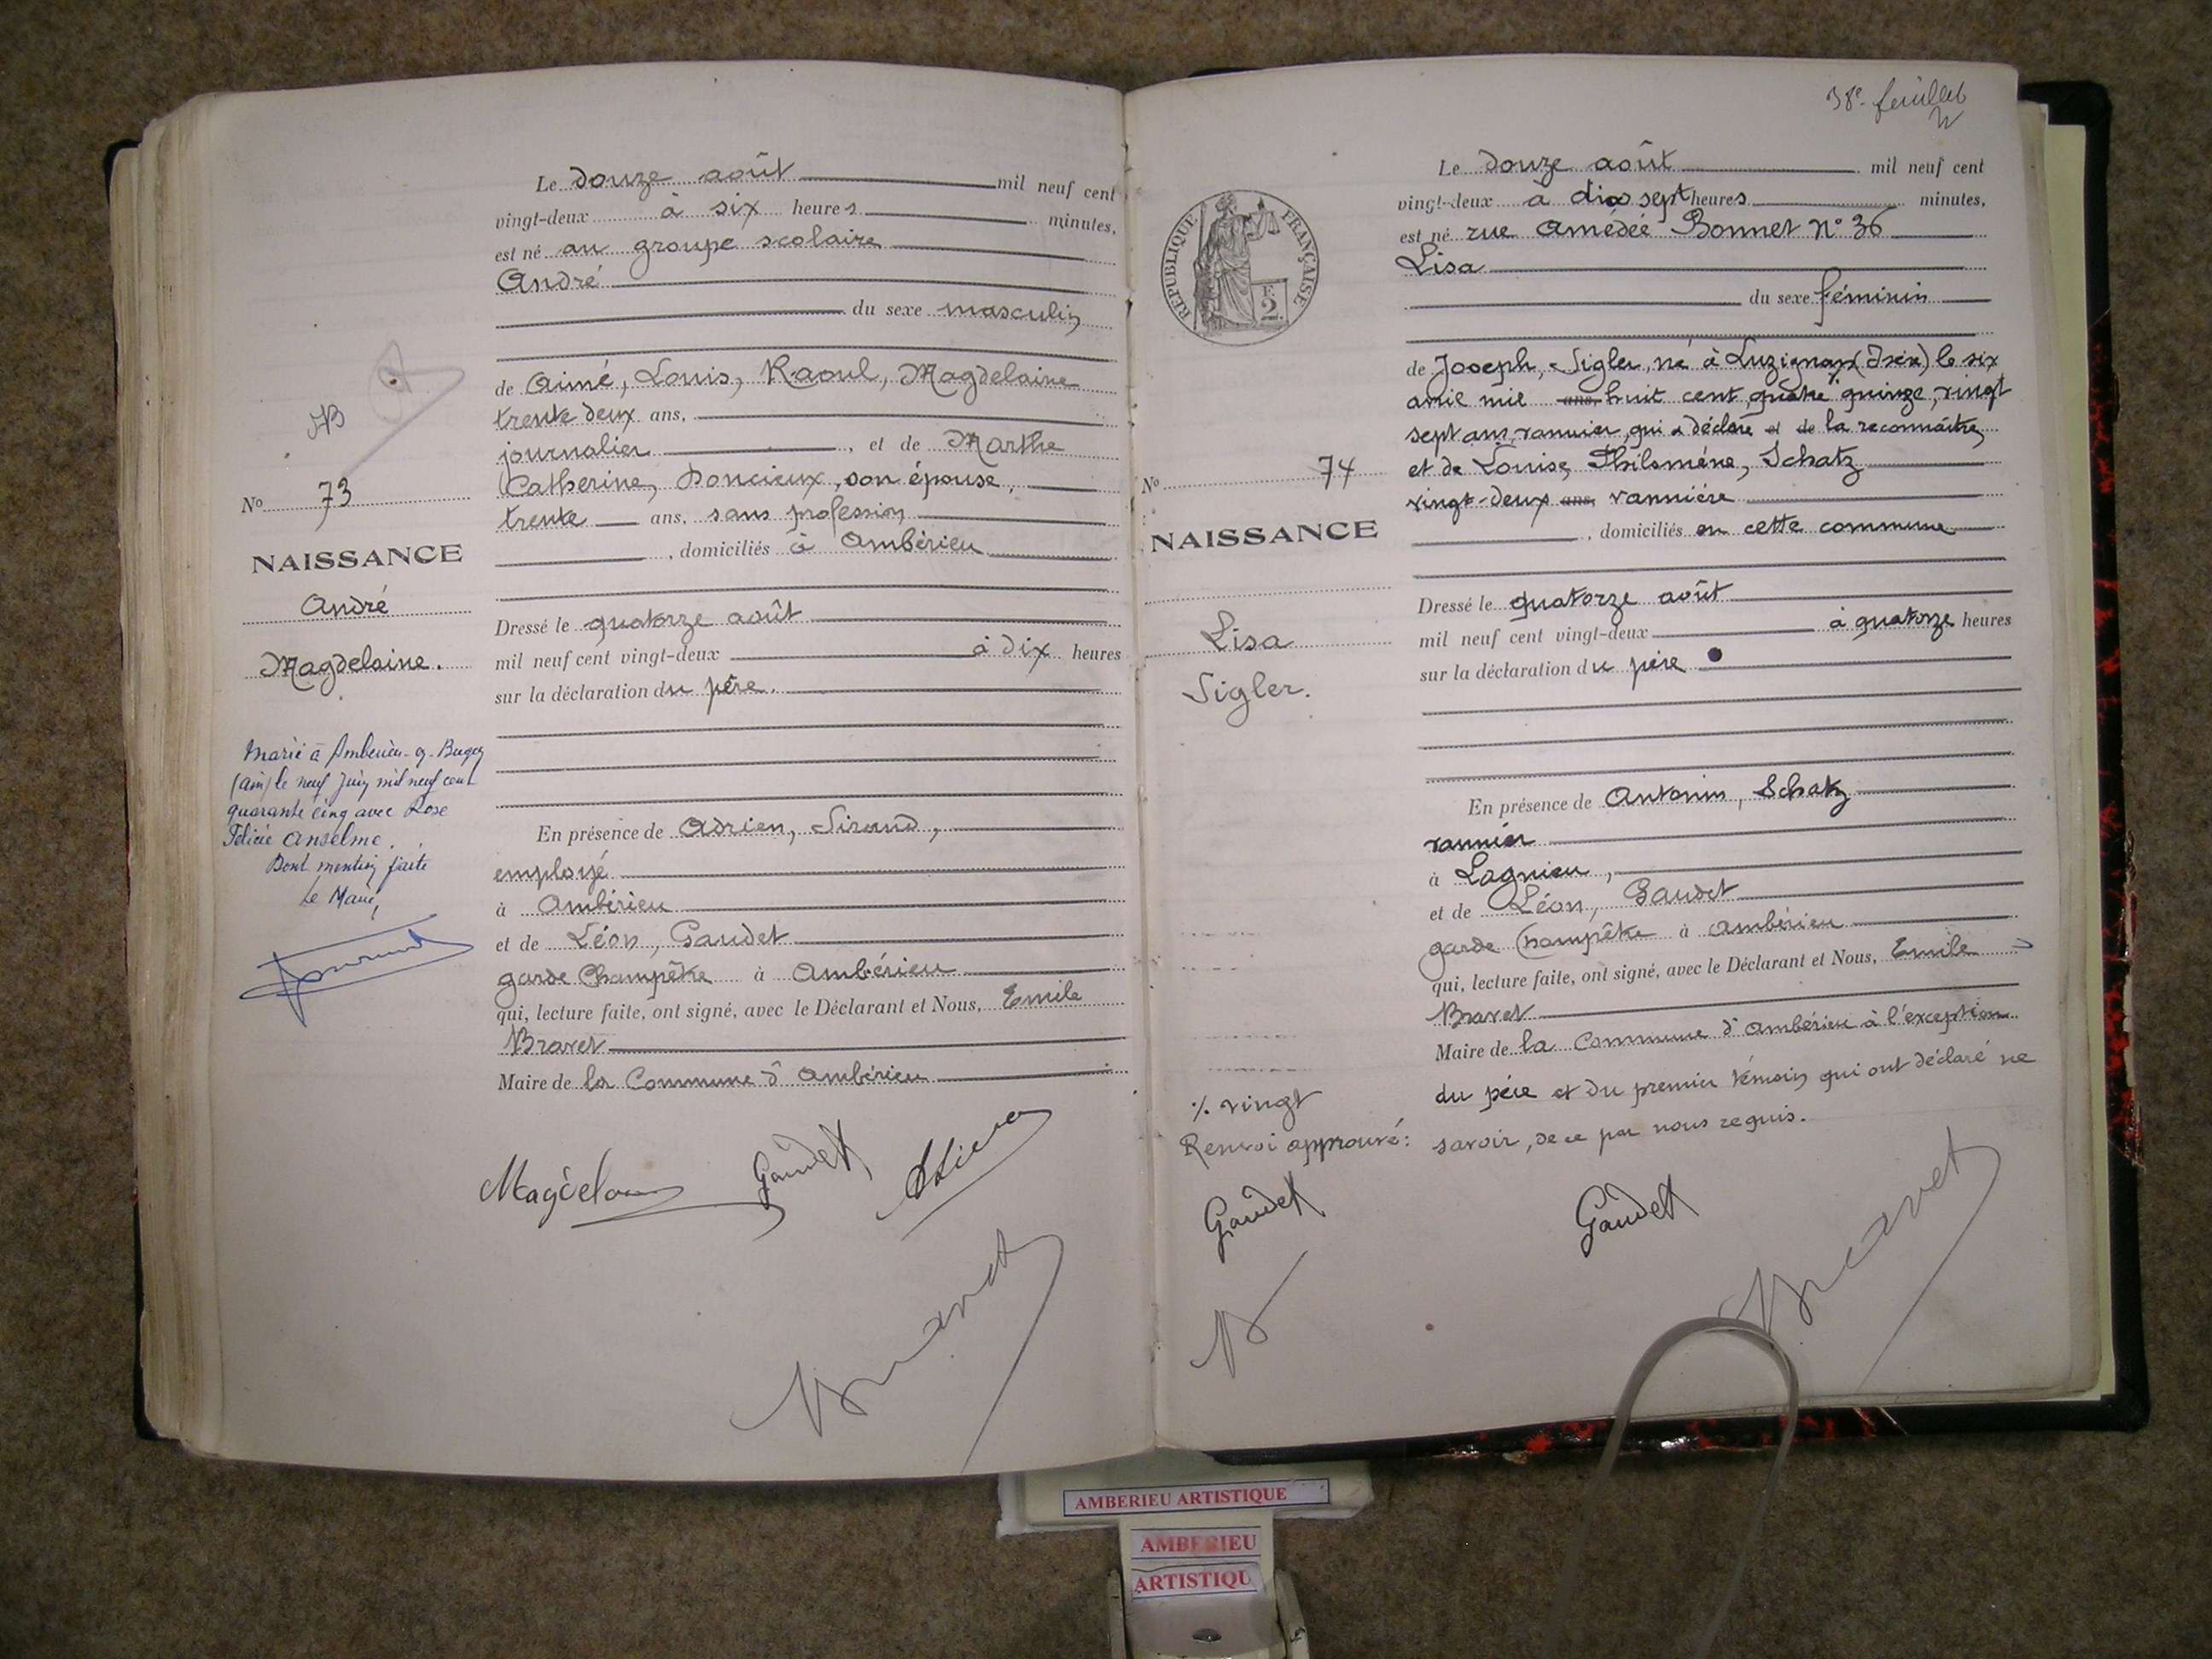 Le douze août mil neuf cent
vingt-deux à six heures minutes,
est né au groupe scolaire
André
du sexe masculin
de Aimé, Louis, Raoul, Magdelaine
trente deux ans,
journalier, et de Marthe
Catherine, Doncieux, son épouse,
trente ans, sans profession
, domiciliés à Ambérieu
Dressé le quatorze août
mil neuf cent vingt-deux à dix heures
sur la déclaration du père.
En présence de Adrien, Siraud,
employé
à Ambérieu
et de Léon, Gaudet
garde Champêtre à Ambérieu
qui, lecture faite, ont signé, avec le Déclarant et Nous, Emile
Bravet
Maire de la Commune d'Ambérieu
No 73
NAISSANCE
André
Magdelaine.
Marié à Ambérieu-en-Bugey
(Ain) le neuf Juin mil neuf cent
quarante cinq avec Rose
Félicie Anselme.
Dont mention faite
Le Maire,
Magdelaine Gaudet
Bravet
38e feuillet
REPUBLIQUE FRANÇAISE
2
Le douze août mil neuf cent
vingt-deux à dix sept heures minutes,
est né rue Amédée Bonnet N° 36
Lisa
du sexe féminin
de Joseph, Sigler, né à Luzignan (Isère) le six
avril mil ans, huit cent quatre % quinze, vingt
sept ans, vannier, qui a déclaré et de la reconnaître,
et de Louise, Philomène, Schatz
vingt-deux ans, vannière
, domiciliés en cette commune
Dressé le quatorze août
mil neuf cent vingt-deux à quatorze heures
sur la déclaration du père
En présence de Antonin, Schatz
vannier
à Lagnieu,
et de Léon, Gaudet
garde Champêtre à Ambérieu
qui, lecture faite, ont signé, avec le Déclarant et Nous, Emile
Bravet
Maire de la Commune d'Ambérieu à l'exception
du père et du premier témoin qui ont déclaré ne
savoir, de ce par nous requis.
No 74
NAISSANCE
Lisa
Sigler.
% vingt
Renvoi approuvé:
Gaudet
Gaudet
Bravet
AMBERIEU ARTISTIQUE
AMBERIEU
ARTISTIQU